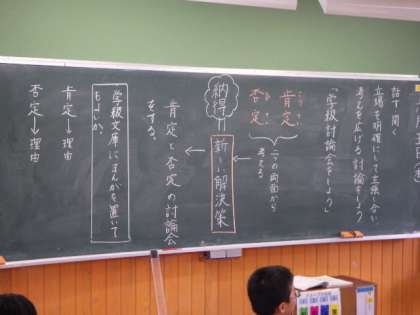 話す聞く
立場を明確にして主張し合い
考えを広げる討論をしよう
「学級討論会をしよう」
肯定
否定
二つの両面から
考える
納得
新しい解決策
肯定と否定の討論会
をする。
学級文庫にまんがを置いて
もよいか。
肯定→理由
否定→理由